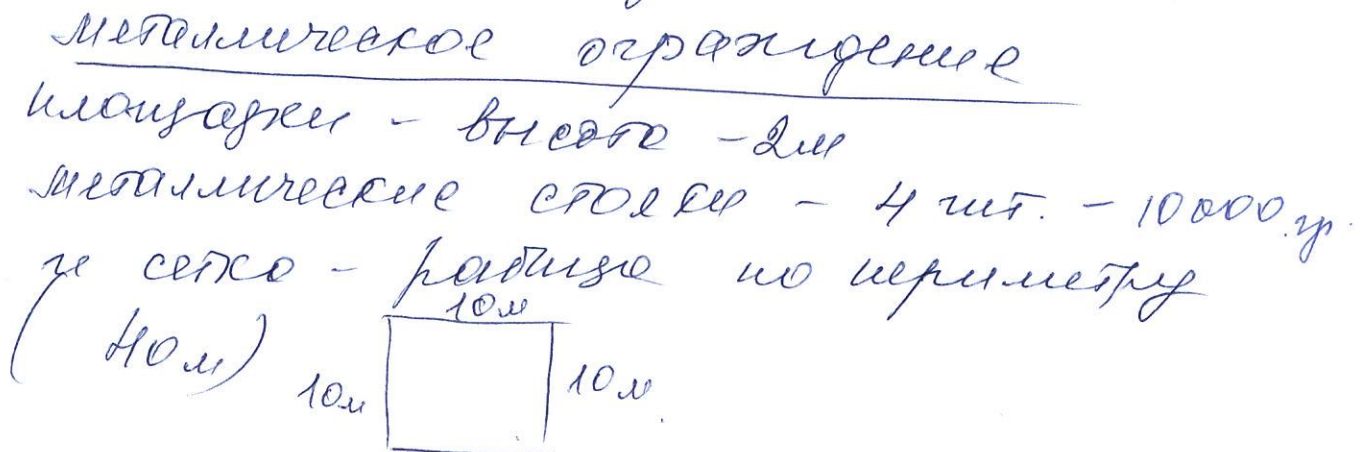 металлическое ограждение
площадки - высота - 2м
металлические стойки - 4 шт. - 10000 гр.
и сетка - рабица по периметру
10м
(40м)
10м
10м.